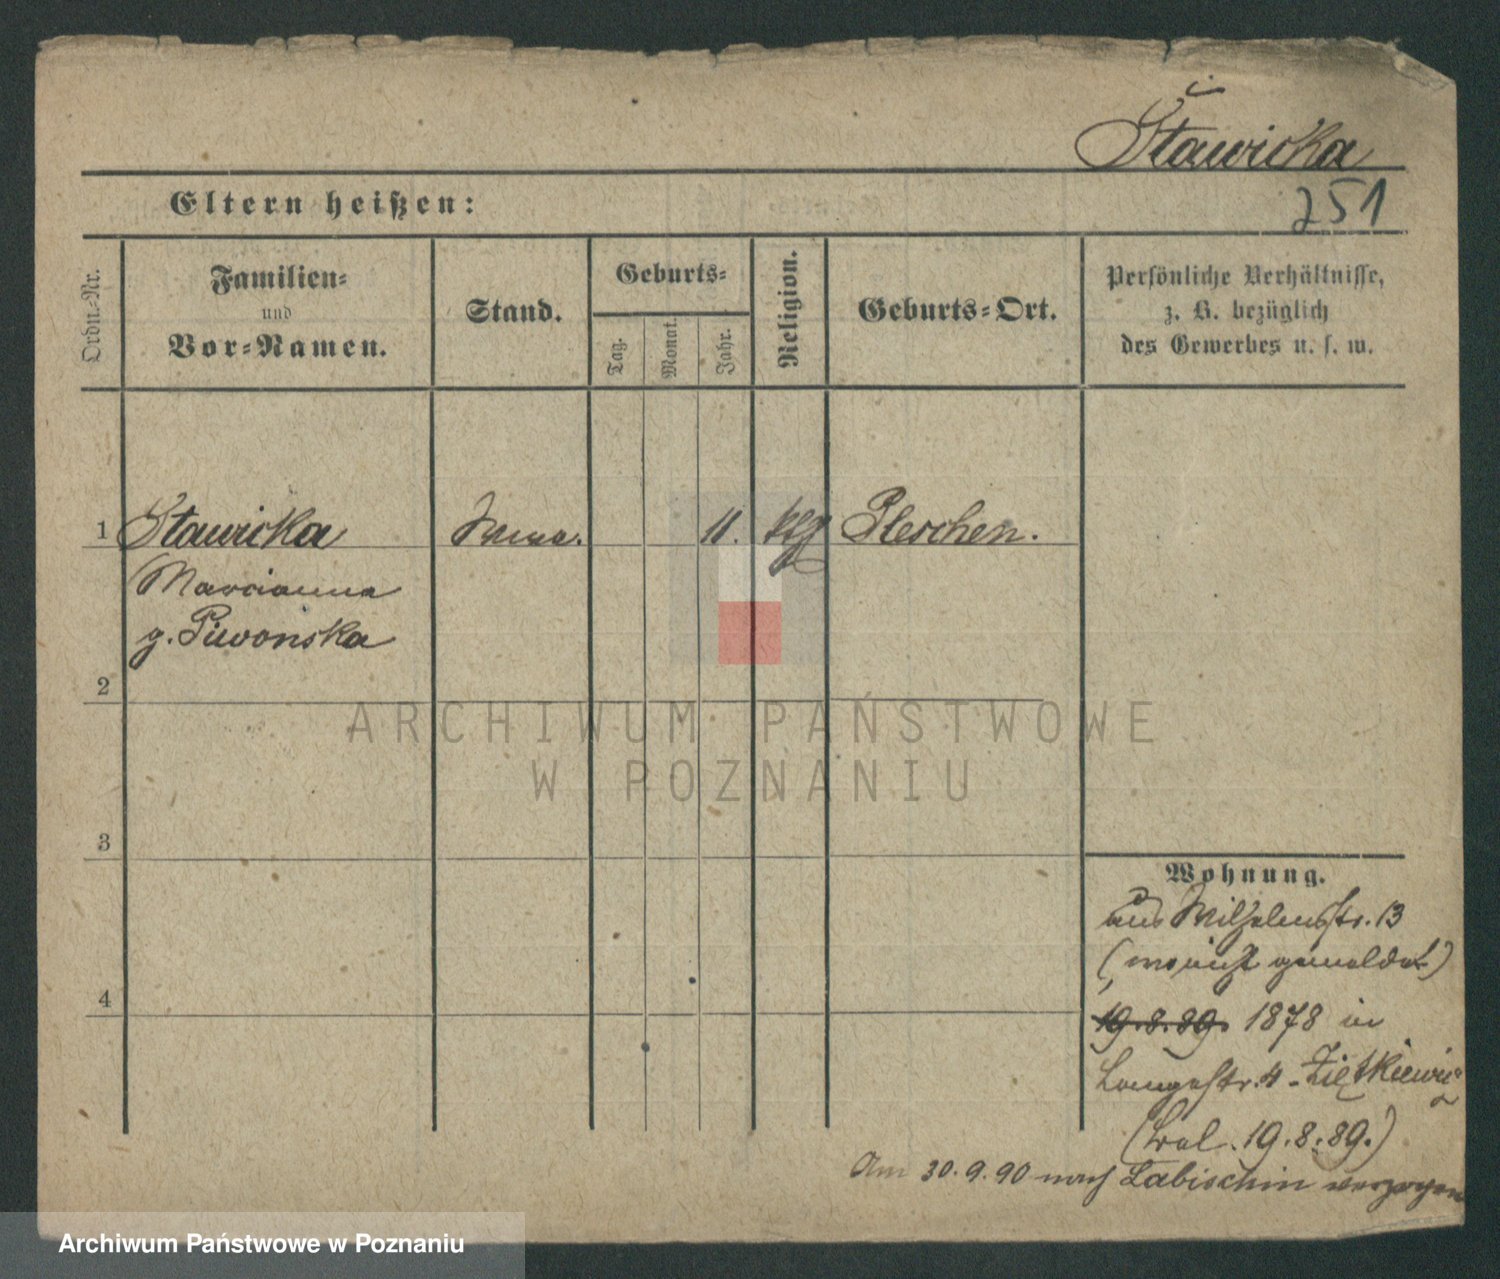 Stawicka
251
Eltern heißen:
Ordn.-Nr.
Familien-
und
Vor-Namen.
Stand.
Geburts-
Tag.
Monat.
Jahr.
Religion.
Geburts-Ort.
Persönliche Verhältnisse,
z. B. bezüglich
des Gewerbes u. s. w.
1 Stawicka 11. kth Pleschen.
Marcianna
g. Piwonska
2
3
4
ARCHIWUM PAŃSTWOWE
W POZNANIU
Wohnung.
aus Wilhelmstr. 13
(wo nicht gemeldet)
19.8.89. 1878 in
Langestr. 4 - Ziętkiewicz
19.8.89.)
Am 30.9.90 nach Labischin verzogen
Archiwum Państwowe w Poznaniu